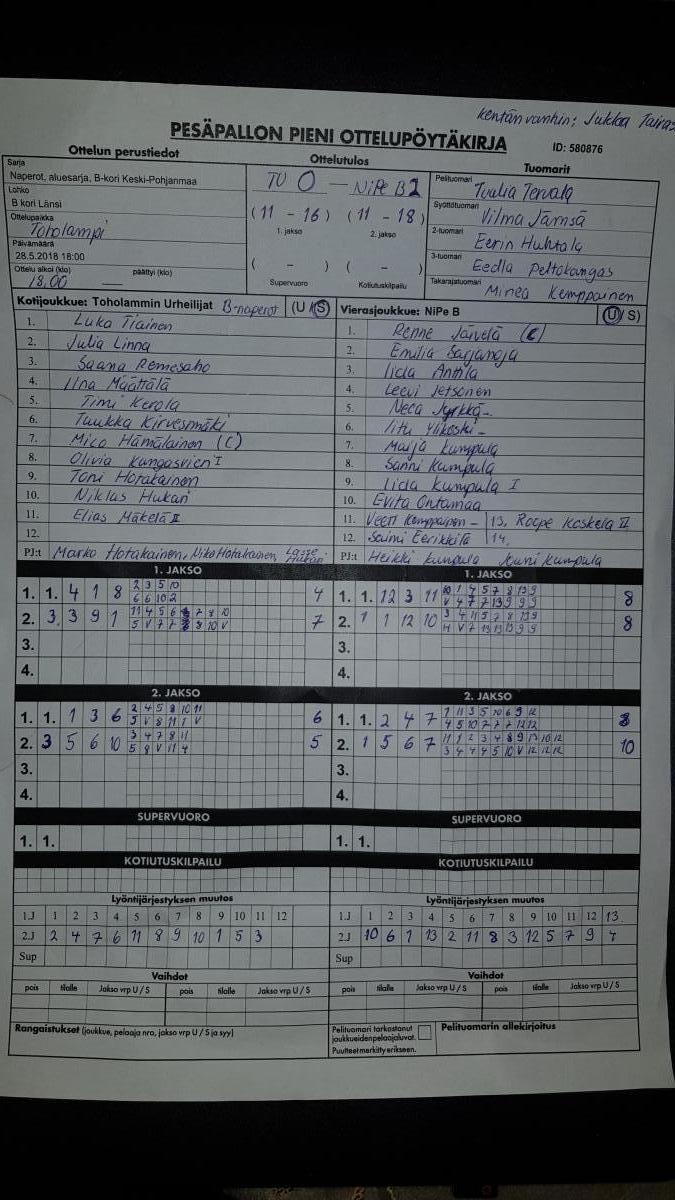 kentän vanhin: Jukka
PESÄPALLON PIENI OTTELUPÖYTÄKIRJA
ID: 580876
Ottelun perustiedot
Ottelutulos
Tuomarit
Sarja
Naperot, aluesarja, B-kori Keski-Pohjanmaa
Lohko
B kori Länsi
Ottelupaikka
Toholampi
Päivämäärä
28.5.2018 18:00
Ottelu alkoi (klo) päättyi (klo)
18.00
TU 0 — NiPe B 2
(11 - 16) (11 - 18)
1. jakso 2. jakso
( - ) ( - )
Supervuoro Kotiutuskilpailu
Pelituomari
Tuulia Tervala
Syöttötuomari
Vilma Jämsä
2-tuomari
Eerin Huhtala
3-tuomari
Eedla Peltokangas
Takarajatuomari
Minea Kemppainen
Kotijoukkue: Toholammin Urheilijat B-naperot (U / S)
1. Luka Tiainen
2. Julia Linna
3. Saana Remesaho
4. Iina Määttälä
5. Timi Kerola
6. Tuukka Kirvesmäki
7. Mico Hämäläinen (C)
8. Olivia Kungasvieri I
9. Toni Hotakainen
10. Niklas Hukari
11. Elias Mäkelä II
12.
PJ:t Marko Hotakainen, Niko Hotakainen, Lasse Hukari
Vierasjoukkue: NiPe B (U / S)
1. Renne Järvelä (C)
2. Emilia Sarjanoja
3. Iida Anttila
4. Leevi Jetsonen
5. Neea Jyrkkä
6. Iitu Ylikoski
7. Maija Kumpula
8. Sanni Kumpula
9. Iida Kumpula I
10. Evita Ontamaa
11. Veeti Kemppainen 13. Roope Koskela II
12. Saimi Eerikkilä 14.
PJ:t Heikki Kumpula Jouni Kumpula
1. JAKSO
1. 1. 4 1 8 2 3 5 10 4
6 6 10 2
2. 3 3 9 1 11 4 5 6 7 8 10 7
3.
4.
1. JAKSO
1. 1. 12 3 11 10 1 4 5 7 8 13 9 8
V 4 7 7 13 9 9 9
2. 1 1 12 10 3 4 11 5 7 8 13 9 8
4 V 7 13 13 13 9 9
3.
4.
2. JAKSO
1. 1. 1 3 6 2 4 5 8 10 11 6
5 V 8 11 1 V
2. 3 5 6 10 3 4 7 8 11 5
5 8 V 11 4
3.
4.
2. JAKSO
1. 1. 2 4 7 1 11 3 5 10 6 9 12 8
4 5 10 7 7 7 12 12
2. 1 5 6 7 11 1 2 3 4 8 9 13 10 12 10
3 4 4 4 5 10 V 12 12 12
3.
4.
SUPERVUORO
1. 1.
SUPERVUORO
1. 1.
KOTIUTUSKILPAILU
KOTIUTUSKILPAILU
Lyöntijärjestyksen muutos
1.J 1 2 3 4 5 6 7 8 9 10 11 12
2.J 2 4 7 6 11 8 9 10 1 5 3
Sup
Lyöntijärjestyksen muutos
1.J 1 2 3 4 5 6 7 8 9 10 11 12 13
2.J 10 6 1 13 2 11 8 3 12 5 7 9 4
Sup
Vaihdot
pois tilalle Jakso vrp U / S pois tilalle Jakso vrp U / S
Vaihdot
pois tilalle Jakso vrp U / S pois tilalle Jakso vrp U / S
Rangaistukset (joukkue, pelaaja nro, jakso vrp U / S ja syy)
Pelituomari tarkastanut
joukkueiden pelaajaluvat.
Puutteet merkitty erikseen.
Pelituomarin allekirjoitus